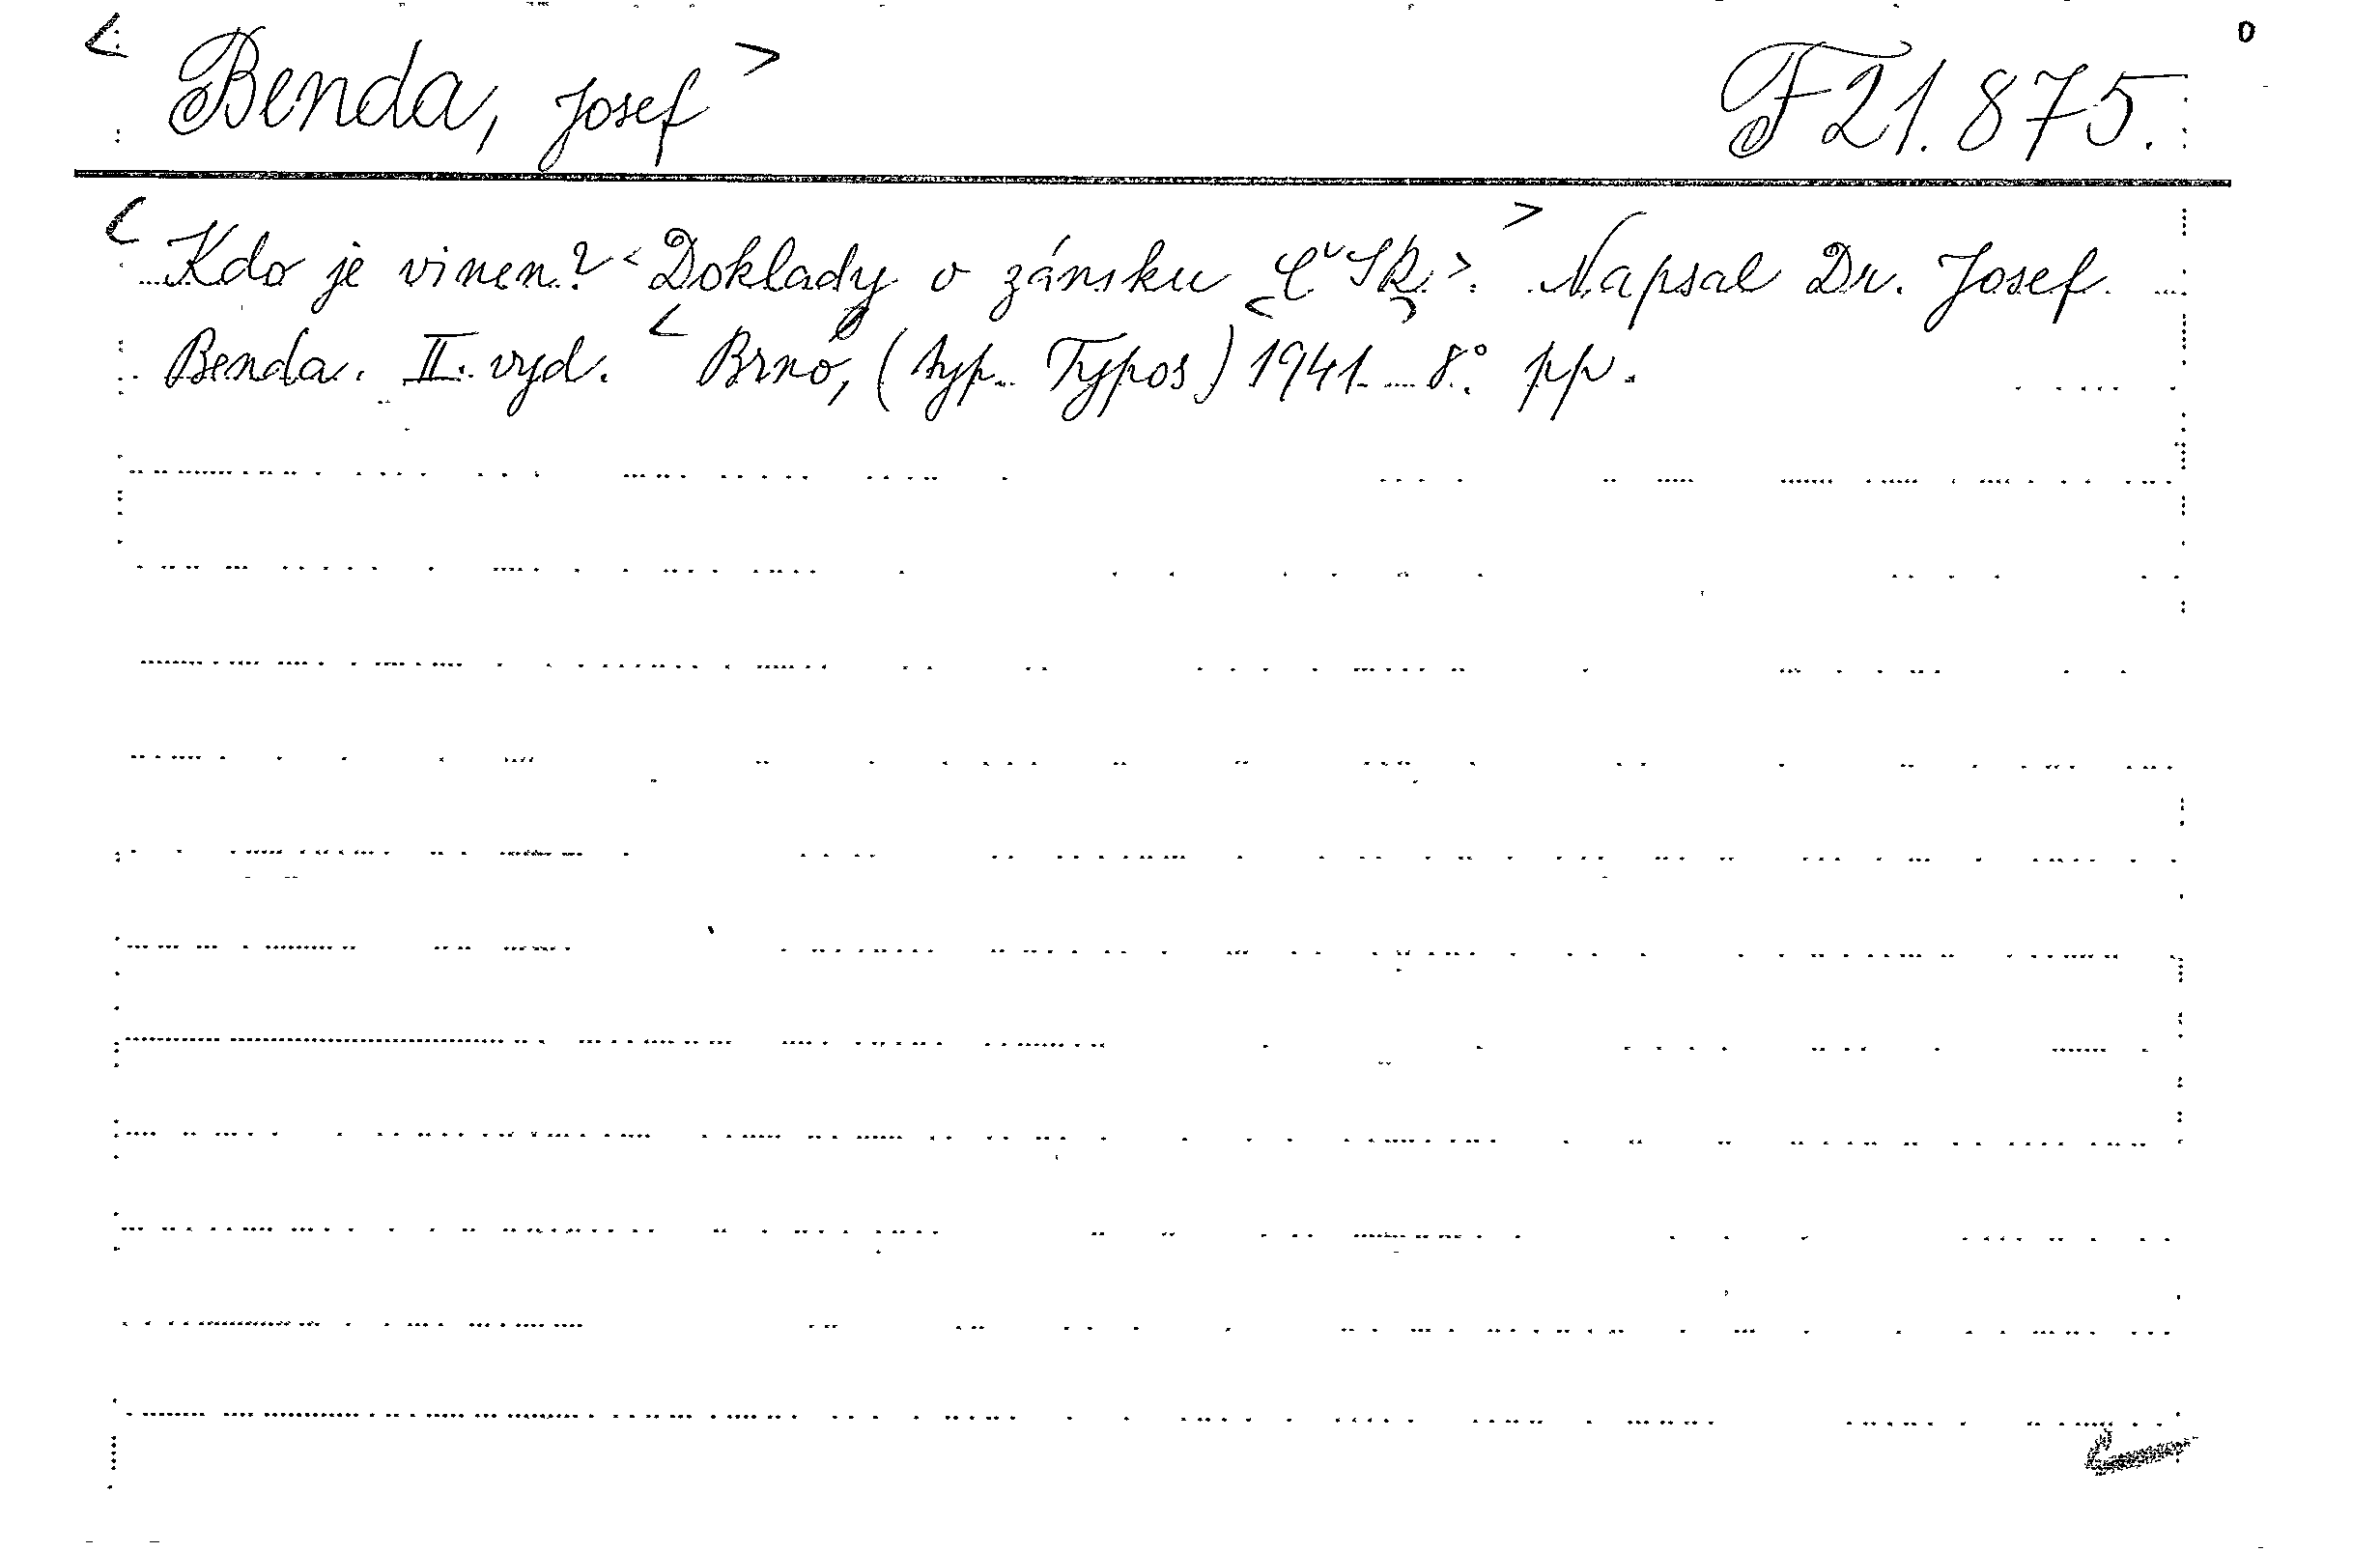 < Benda, Josef > F 21.875. 0
< Kdo je vinen? <Doklady o zániku Č SR.>. > Napsal Dr. Josef
Benda. II. vyd. < Brno, (typ. Typos) < 1941 > 8° pp.